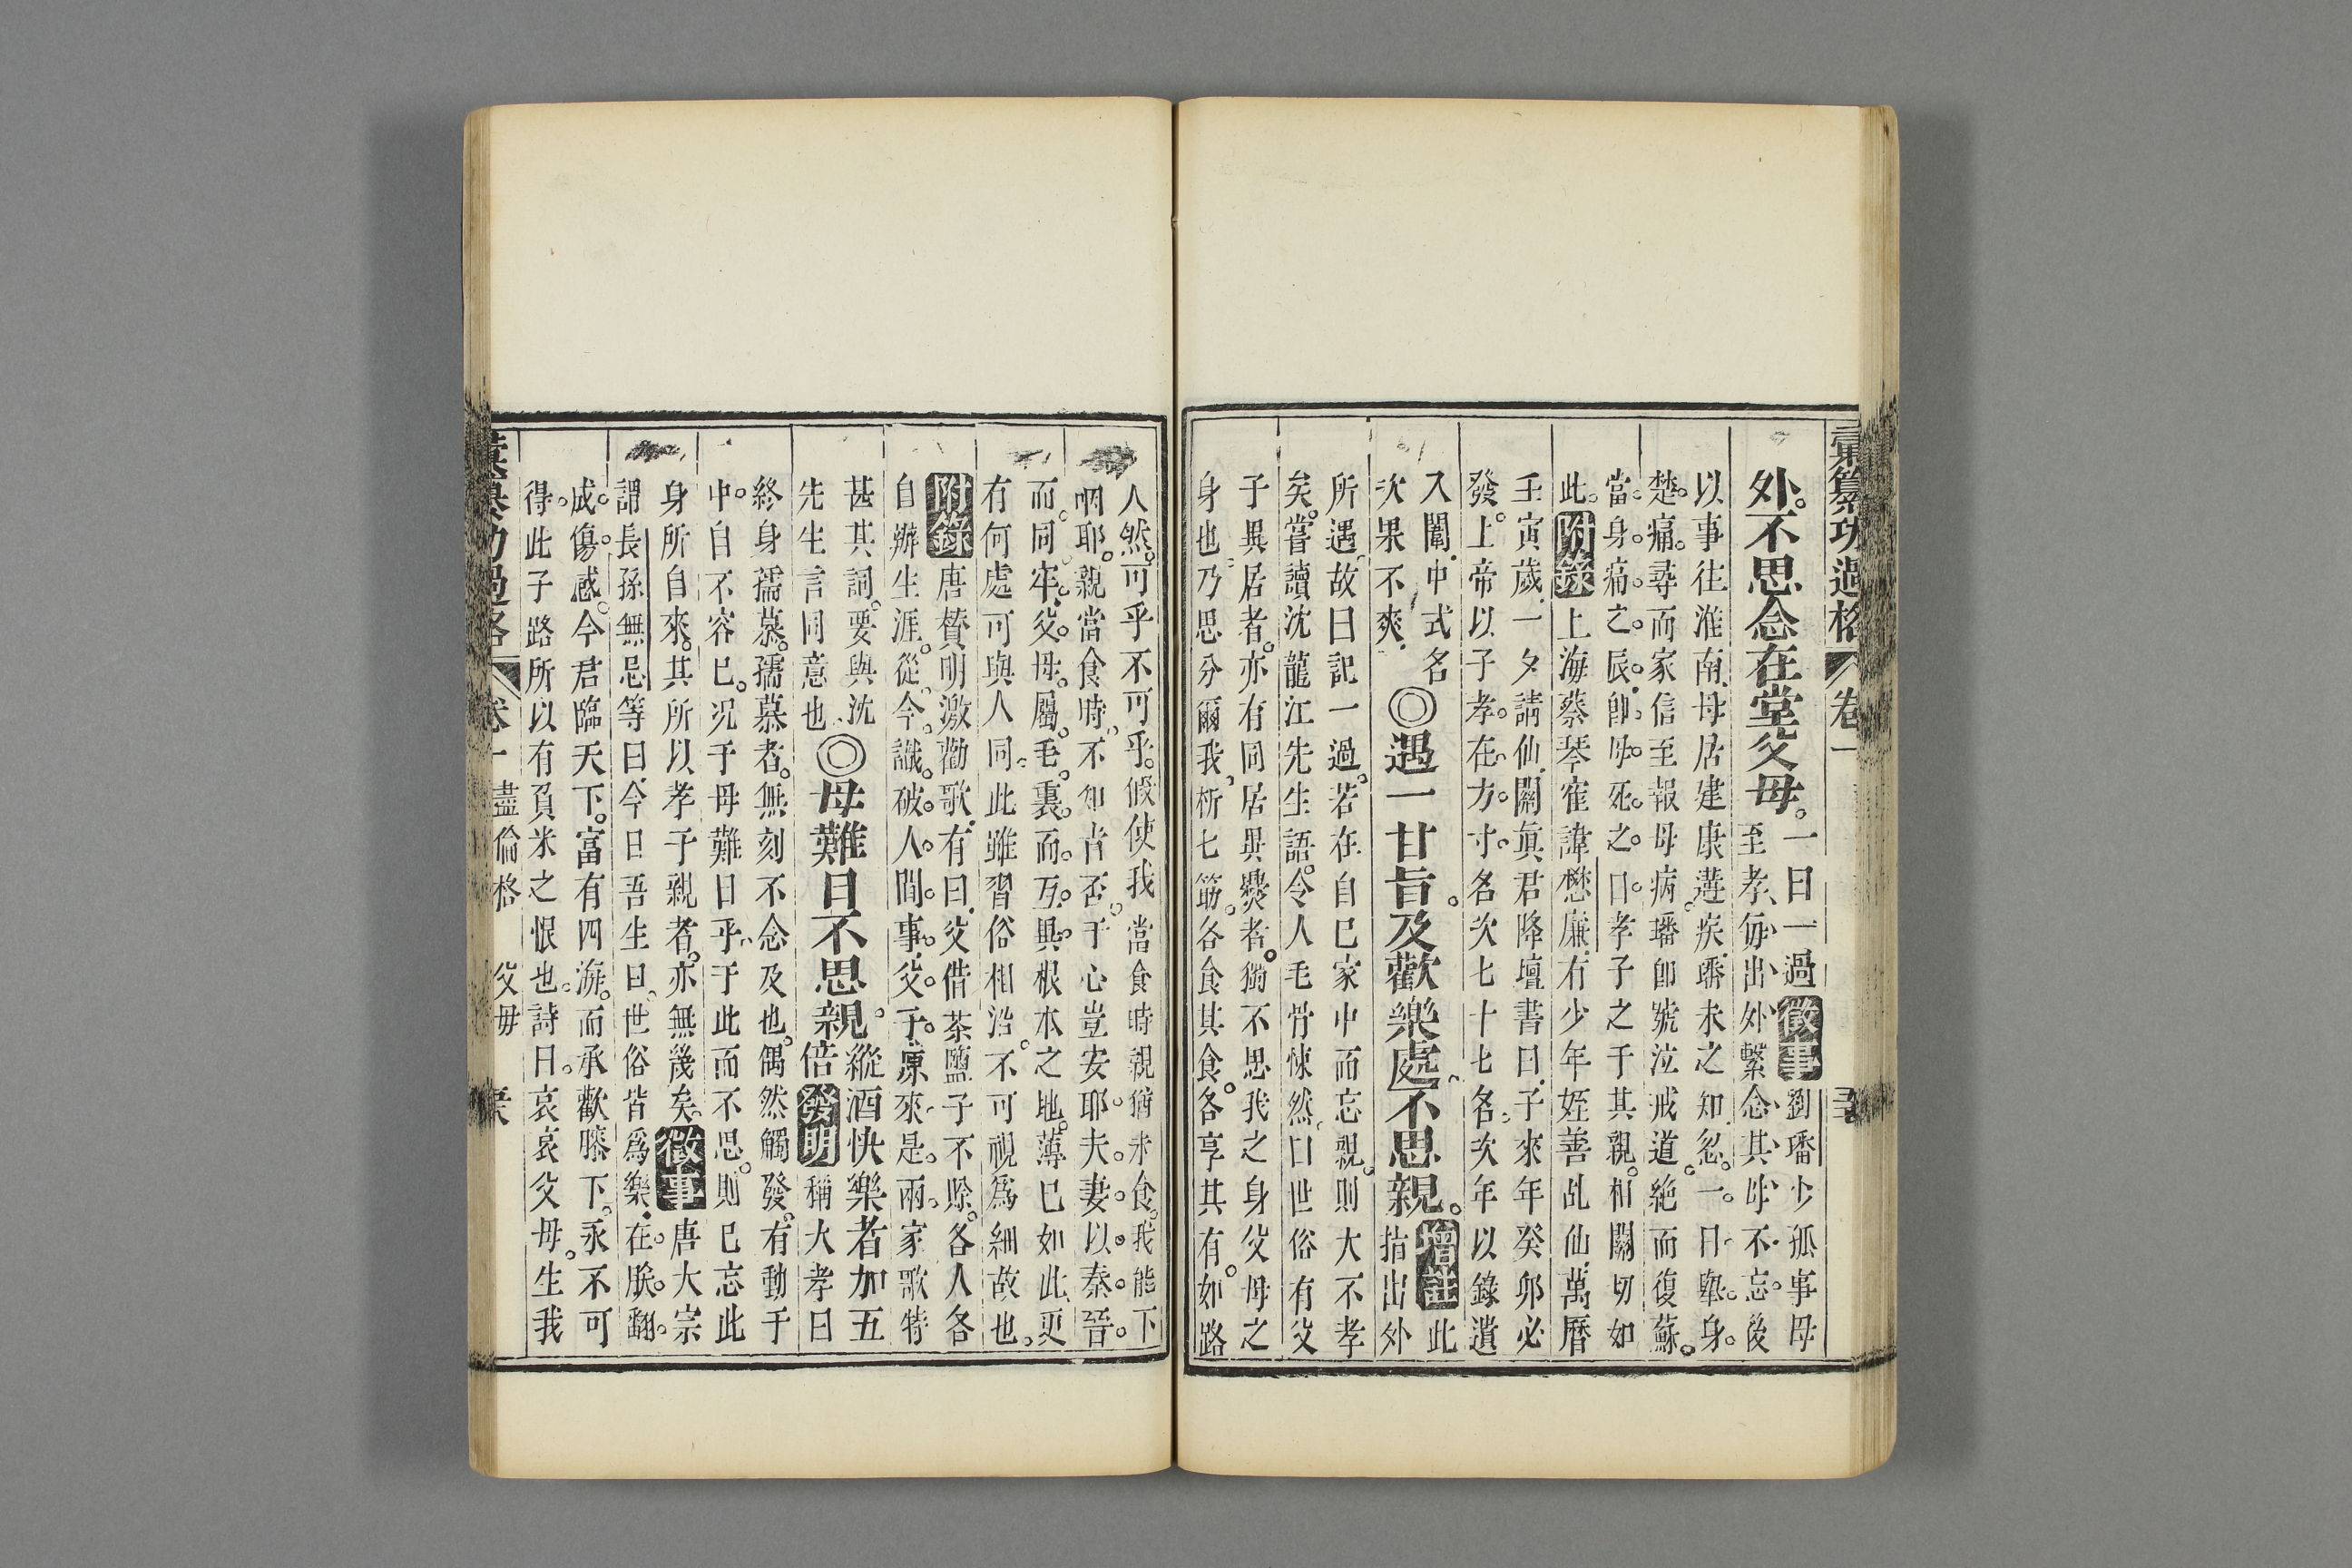 彙纂功過格 卷一
外不思念在堂父母。一日一過 徵事 劉璠少孤事母
至孝每出外繫念其母不忘。後
以事往淮南母居建康遘疾璠未之知忽。一。日。舉。身。
楚。痛。尋而家信至報母病。璠卽號泣戒道。絕而復蘇。
當。身。痛。之。辰。卽。母。死。之。日。孝子之于其親。相關切如
此。附錄 上海蔡琴崔諱懋廉有少年姪善乩仙萬曆
壬寅歲一夕請仙關眞君降壇書曰子來年癸卯必
發。上帝以子孝。在。方。寸。名次七十七名。次年以錄遺
入闈中式名
次果不爽
◎遇一甘旨。及歡樂處不思親。增註 此指出外
所遇故曰記一過。若在自己家中而忘親。則大不孝
矣。嘗讀沈龍江先生語。令人毛骨悚然。曰世俗有父
子異居者。亦有同居異爨者。獨不思我之身父母之
身也乃思分爾我析七筯。各食其食。各享其有。如路
人然。可乎不可乎。假使我當食時親猶未食。我能下
咽耶。親當食時不知者否。于心豈安耶。夫。妻。以。秦。晉。
而。同。牢。父。母。屬。毛。裏。而。互。異。根本之地。薄已如此更
有何處可與人同。此雖習俗相沿。不可視爲細故也。
附錄 唐贊明激勸歌。有曰父借茶鹽子不賒。各人各
自辦生涯。從。今。識。破。人。間。事。父。子。原。來。是。兩。家歌特
甚其詞。要與沈
先生言同意也
◎母難日不思親。縱酒快樂者加五倍 發明 稱大孝曰
終身孺慕。孺慕者。無刻不念及也。偶然觸發。有動于
中。自不容已。况于母難日乎。于此而不思。則已忘此
身所自來。其所以孝于親者。亦無幾矣。徵事 唐大宗
謂長孫無忌等曰今日吾生日。世俗皆爲樂。在。朕。翻。
成。傷。感。今君臨天下。富有四海。而承歡膝下。永不可
得。此子路所以有負米之恨也。詩曰。哀哀父母。生我
卷一 盡倫格 父母